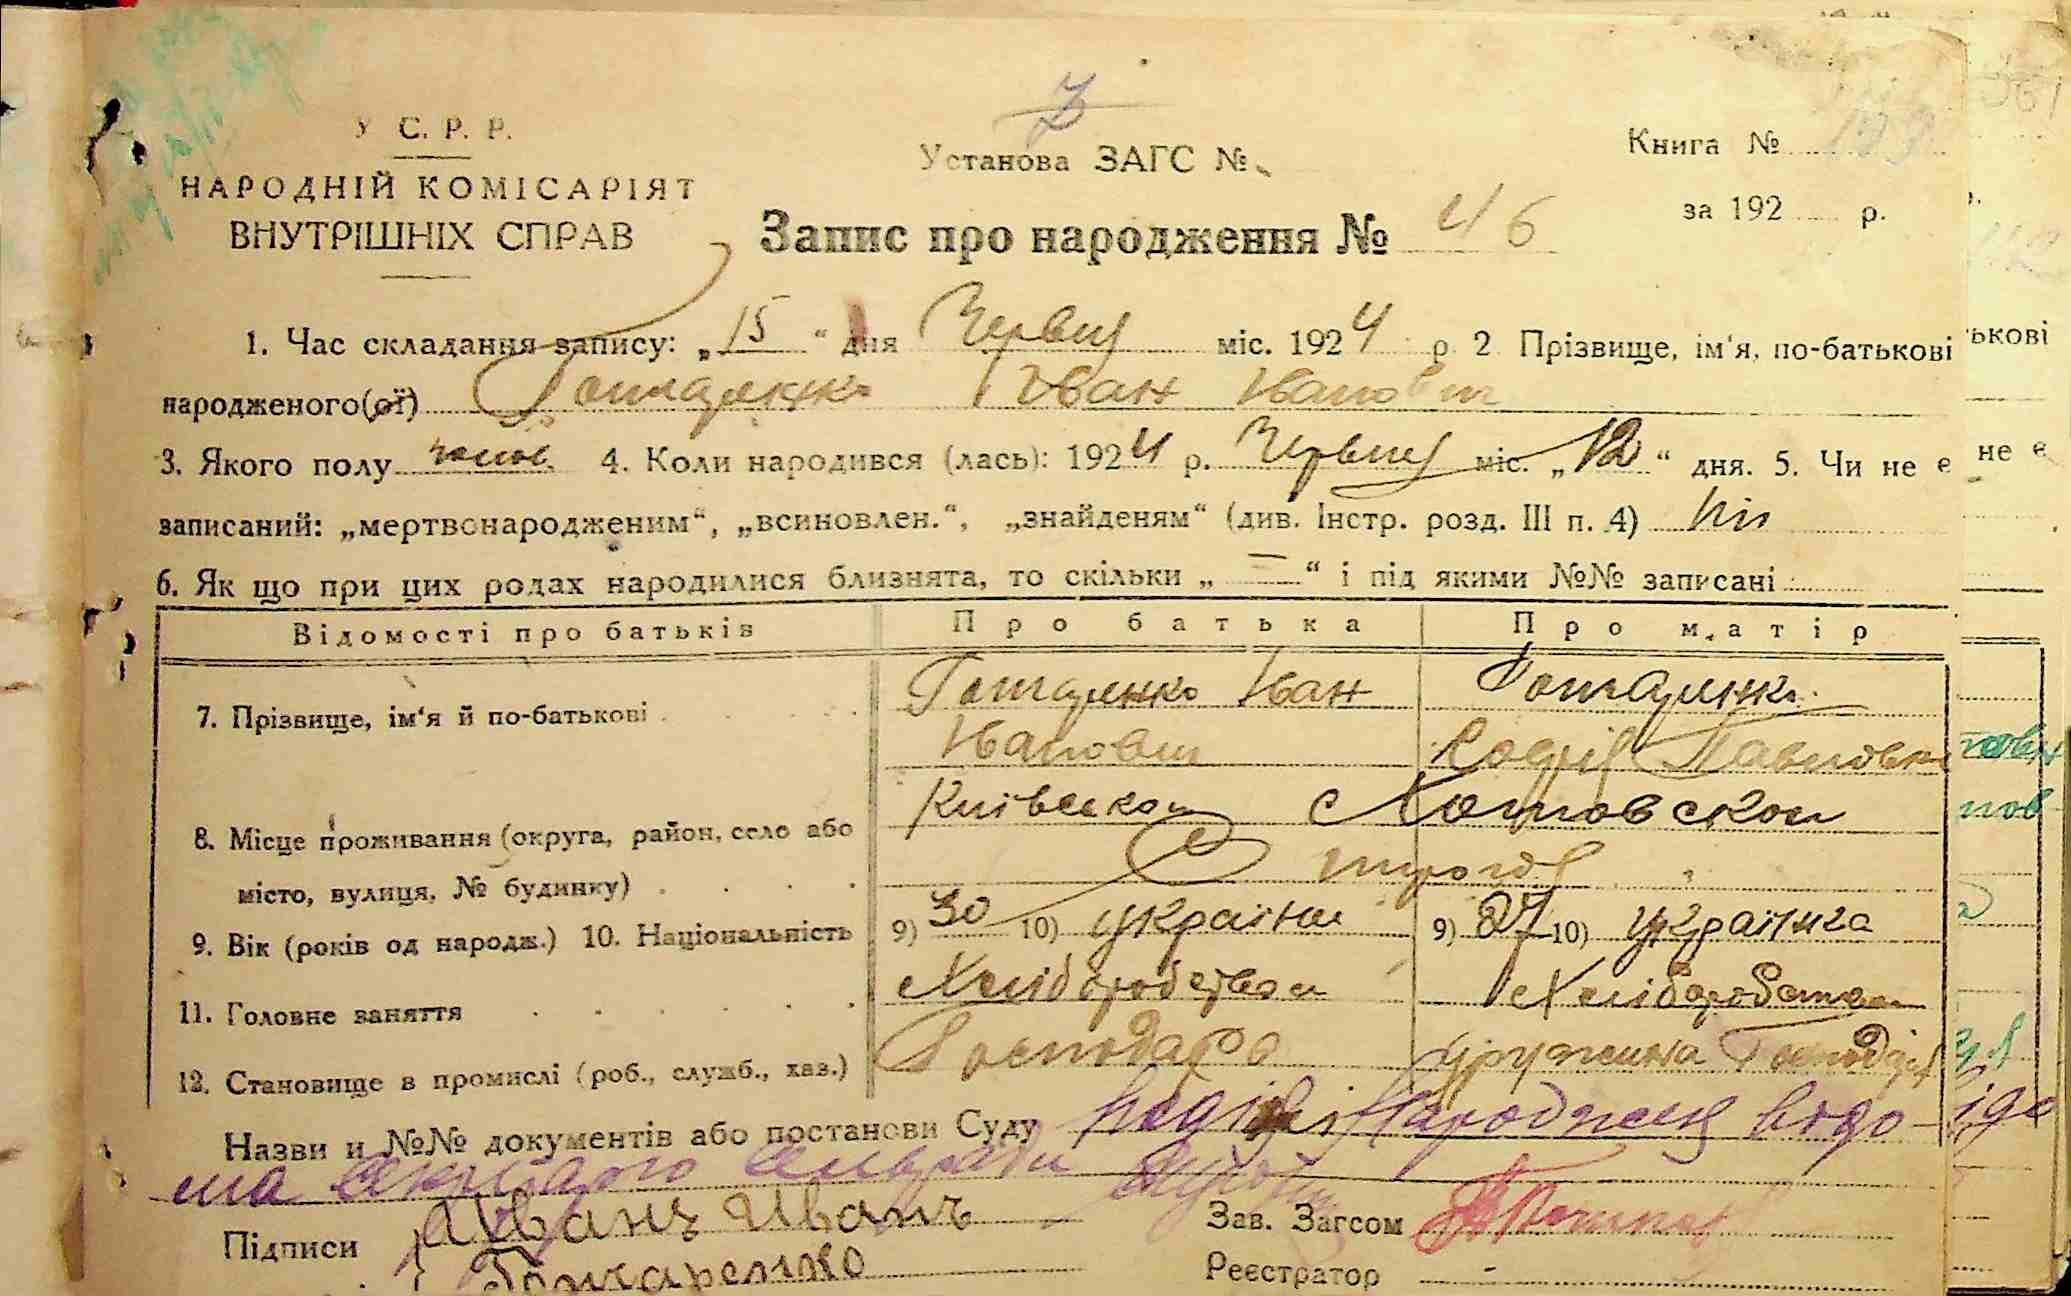 У С. Р. Р.
НАРОДНІЙ КОМІСАРІЯТ
ВНУТРІШНІХ СПРАВ
З
Установа ЗАГС №
Книга №
за 192 р.
Запис про народження № 46
1. Час складання запису: „15“ дня Червня міс. 1924 р 2 Прізвище, ім'я, по-батькові
народженого(ої) Гончаренко Іван Іванович
3. Якого полу чолов. 4. Коли народився (лась): 1924 р. Червня міс. „12“ дня. 5. Чи не є
записаний: „мертвонародженим“, „всиновлен.“, „знайденям“ (див. Інстр. розд. III п. 4) Ні
6. Як що при цих родах народилися близнята, то скільки „ — “ і під якими №№ записані
Відомості про батьків Про батька Про матір
7. Прізвище, ім'я й по-батькові Гончаренко Іван Гончаренко
Іванович Софія Павловна
8. Місце проживання (округа, район, село або Київськои Хотовскои
місто, вулиця, № будинку)
9. Вік (років од народж.) 10. Національність 9) 30 10) українець 9) 27 10) українка
11. Головне заняття Хліборобством Хліборобством
12. Становище в промислі (роб., служб., хаз.) Господарь дружина Господаря
Назви и №№ документів або постанови Суду народження
та
Підписи Іванъ Иванъ
Гончаренко
Зав. Загсом
Реєстратор -